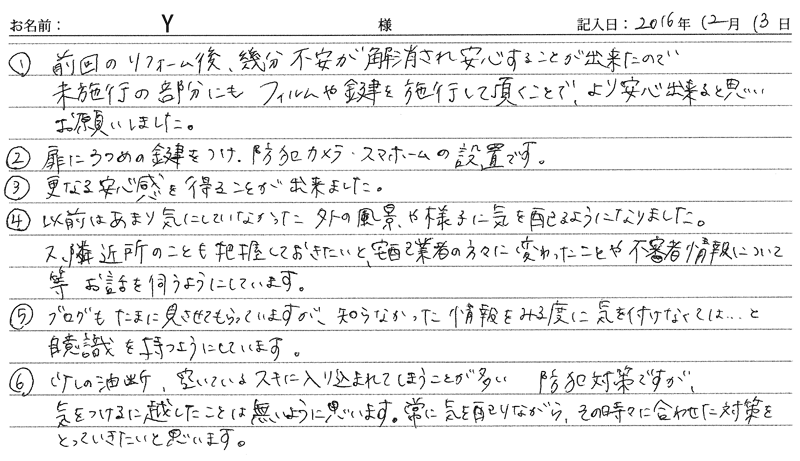 お名前: Y 様 記入日: 2016年 12月 13日
① 前回のリフォーム後、幾分不安が解消され安心することが出来たので
未施行の部分にも フィルムや鍵を施行して頂くことで、より安心出来ると思い
お願いしました。
② 扉に3つめの鍵をつけ、防犯カメラ・スマホームの設置です。
③ 更なる安心感を得ることが出来ました。
④ 以前はあまり気にしていなかった外の風景や様子に気を配るようになりました。
又、隣近所のことも把握しておきたいと、宅配業者の方々に変わったことや不審者情報について
等 お話を伺うようにしています。
⑤ ブログもたまに見させてもらっていますが、知らなかった情報をみる度に気を付けなくては…と
自意識を持つようにしています。
⑥ 少しの油断、空いているスキに入り込まれてしまうことが多い 防犯対策ですが、
気をつけるに越したことは無いように思います。常に気を配りながら、その時々に合わせた対策を
とっていきたいと思います。